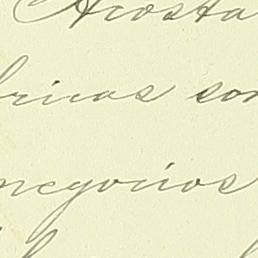 Acosta
bricas son
negocios